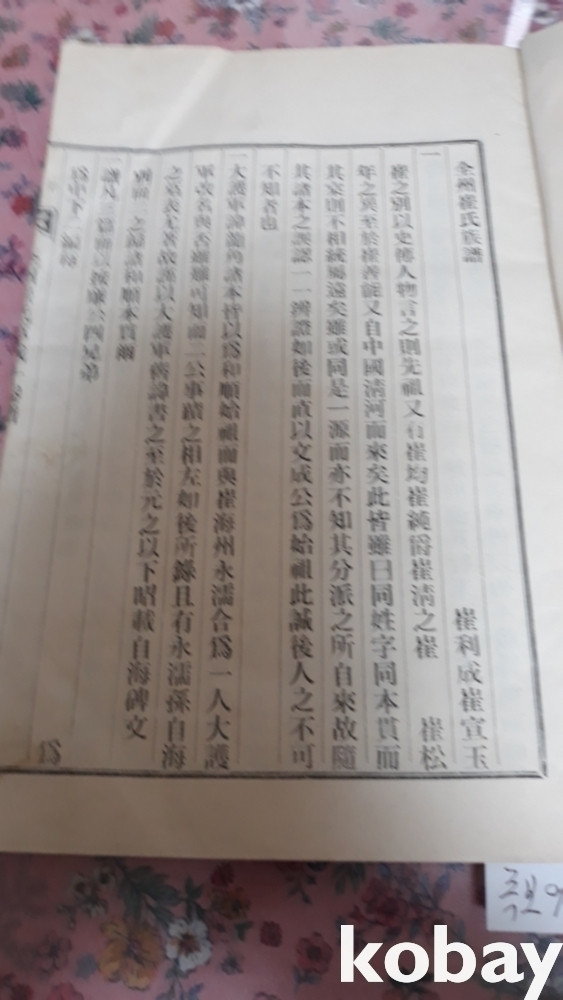 全州崔氏族譜
崔利成崔宣玉
一
崔之別以史傳人物言之則先祖又有崔均崔純爵崔淸之崔
崔松
年之異至於崔善能又自中國淸河而來矣此皆雖曰同姓字同本貫而
其宗則不相統屬遠矣雖或同是一源而亦不知其分派之所自來故隨
其諸本之誤認一一辨證如後而直以文成公爲始祖此誠後人之不可
不知者也
一大護軍諱龍角諸本皆以爲和順始祖而與崔海州永濡合爲一人大護
軍改名與否雖難可知而二公事蹟之相左如後所錄且有永濡孫自海
之墓表尤著故譜以大護軍舊諱書之至於元之以下昭載自海碑文
別油一之歸諸和順本貫
一譜凡
四兄弟
爲中下二編
kobay
족보